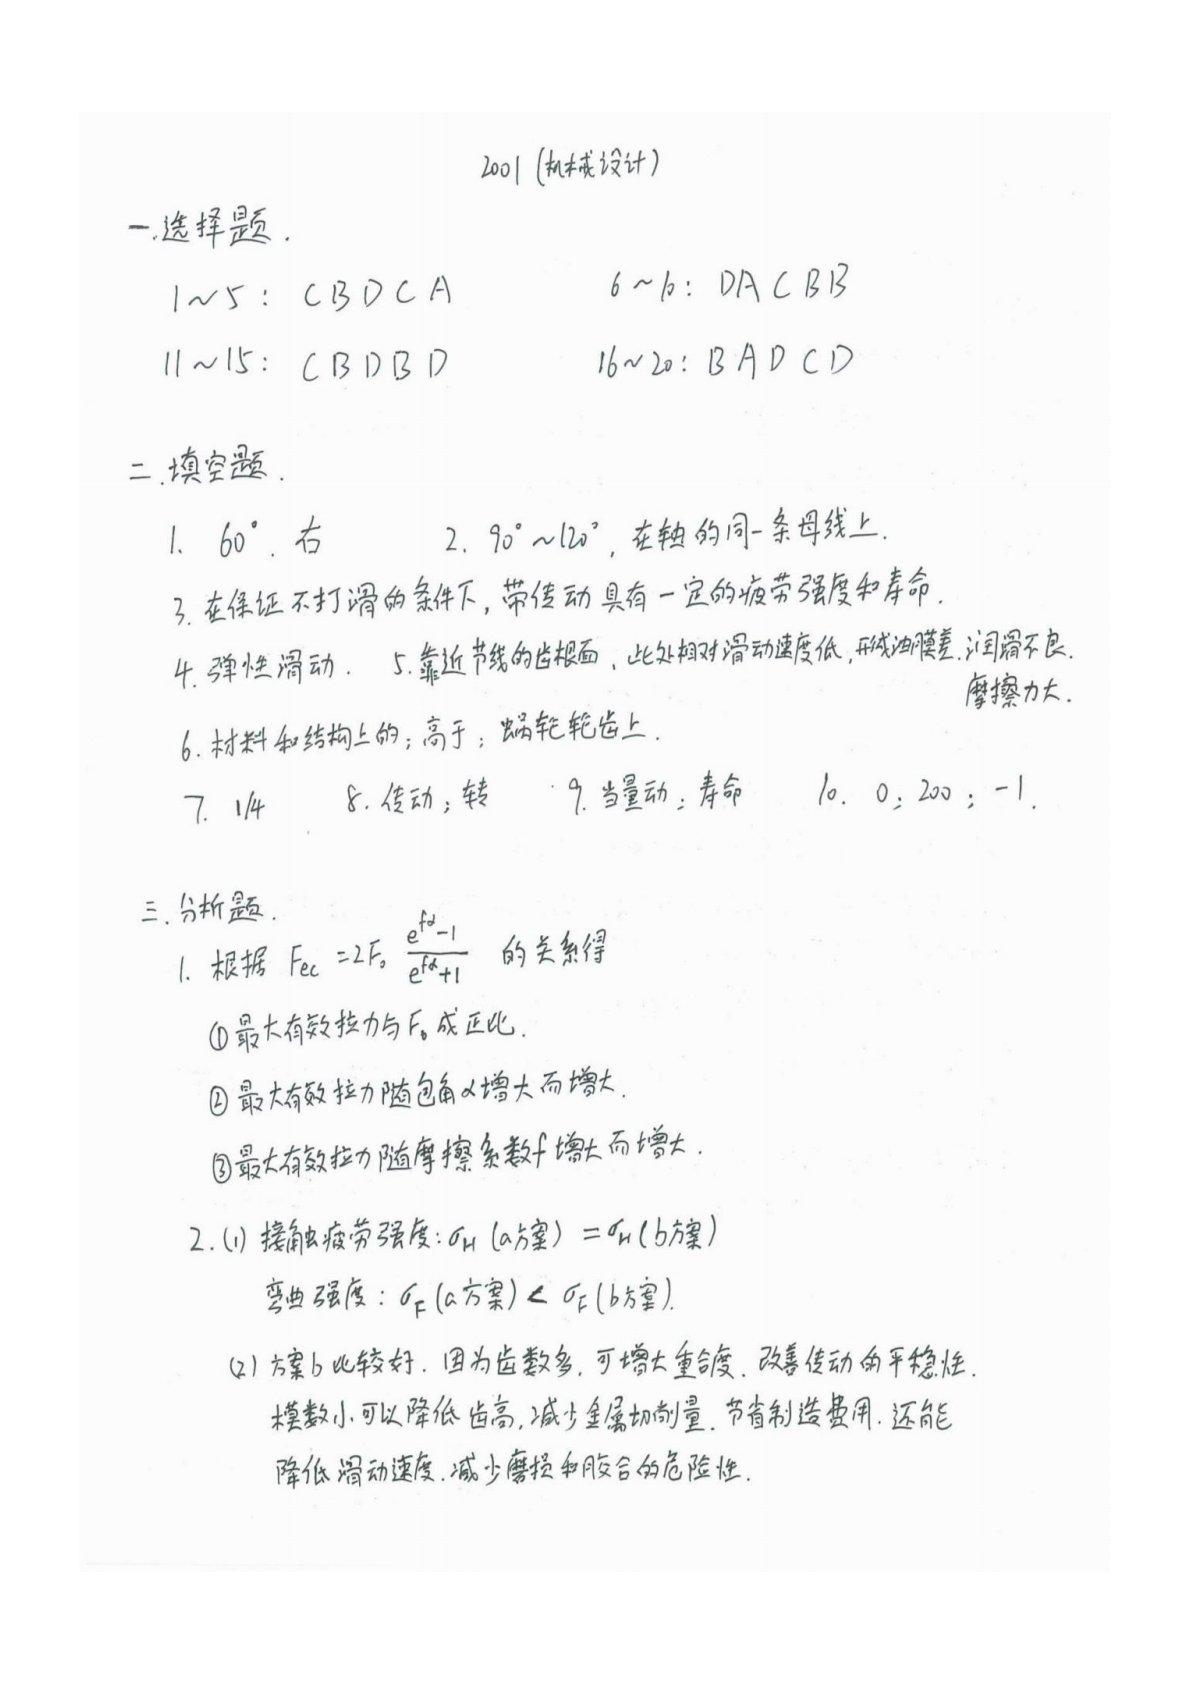 2001 (机械设计)
一.选择题.
1~5: CBDCA 6~10: DACBB
11~15: CBDBD 16~20: BADCD
二.填空题.
1. 60°. 右 2. 90°~120°, 在轴的同一条母线上.
3. 在保证不打滑的条件下, 带传动具有一定的疲劳强度和寿命.
4. 弹性滑动. 5. 靠近节线的齿根面, 此处相对滑动速度低, 形成油膜差. 润滑不良.
摩擦力大.
6. 材料和结构上的; 高于; 蜗轮轮齿上.
7. 1/4 8. 传动; 转 9. 当量动; 寿命 10. 0; 200; -1.
三.分析题.
1. 根据 Fec = 2F₀ (e^{fα}-1)/(e^{fα}+1) 的关系得
①最大有效拉力与F₀成正比.
②最大有效拉力随包角α增大而增大.
③最大有效拉力随摩擦系数f增大而增大.
2. (1) 接触疲劳强度: σH (a方案) = σH (b方案)
弯曲强度: σF (a方案) < σF (b方案).
(2) 方案b比较好. 因为齿数多, 可增大重合度. 改善传动的平稳性.
模数小可以降低齿高, 减少金属切削量. 节省制造费用. 还能
降低滑动速度. 减少磨损和胶合的危险性.